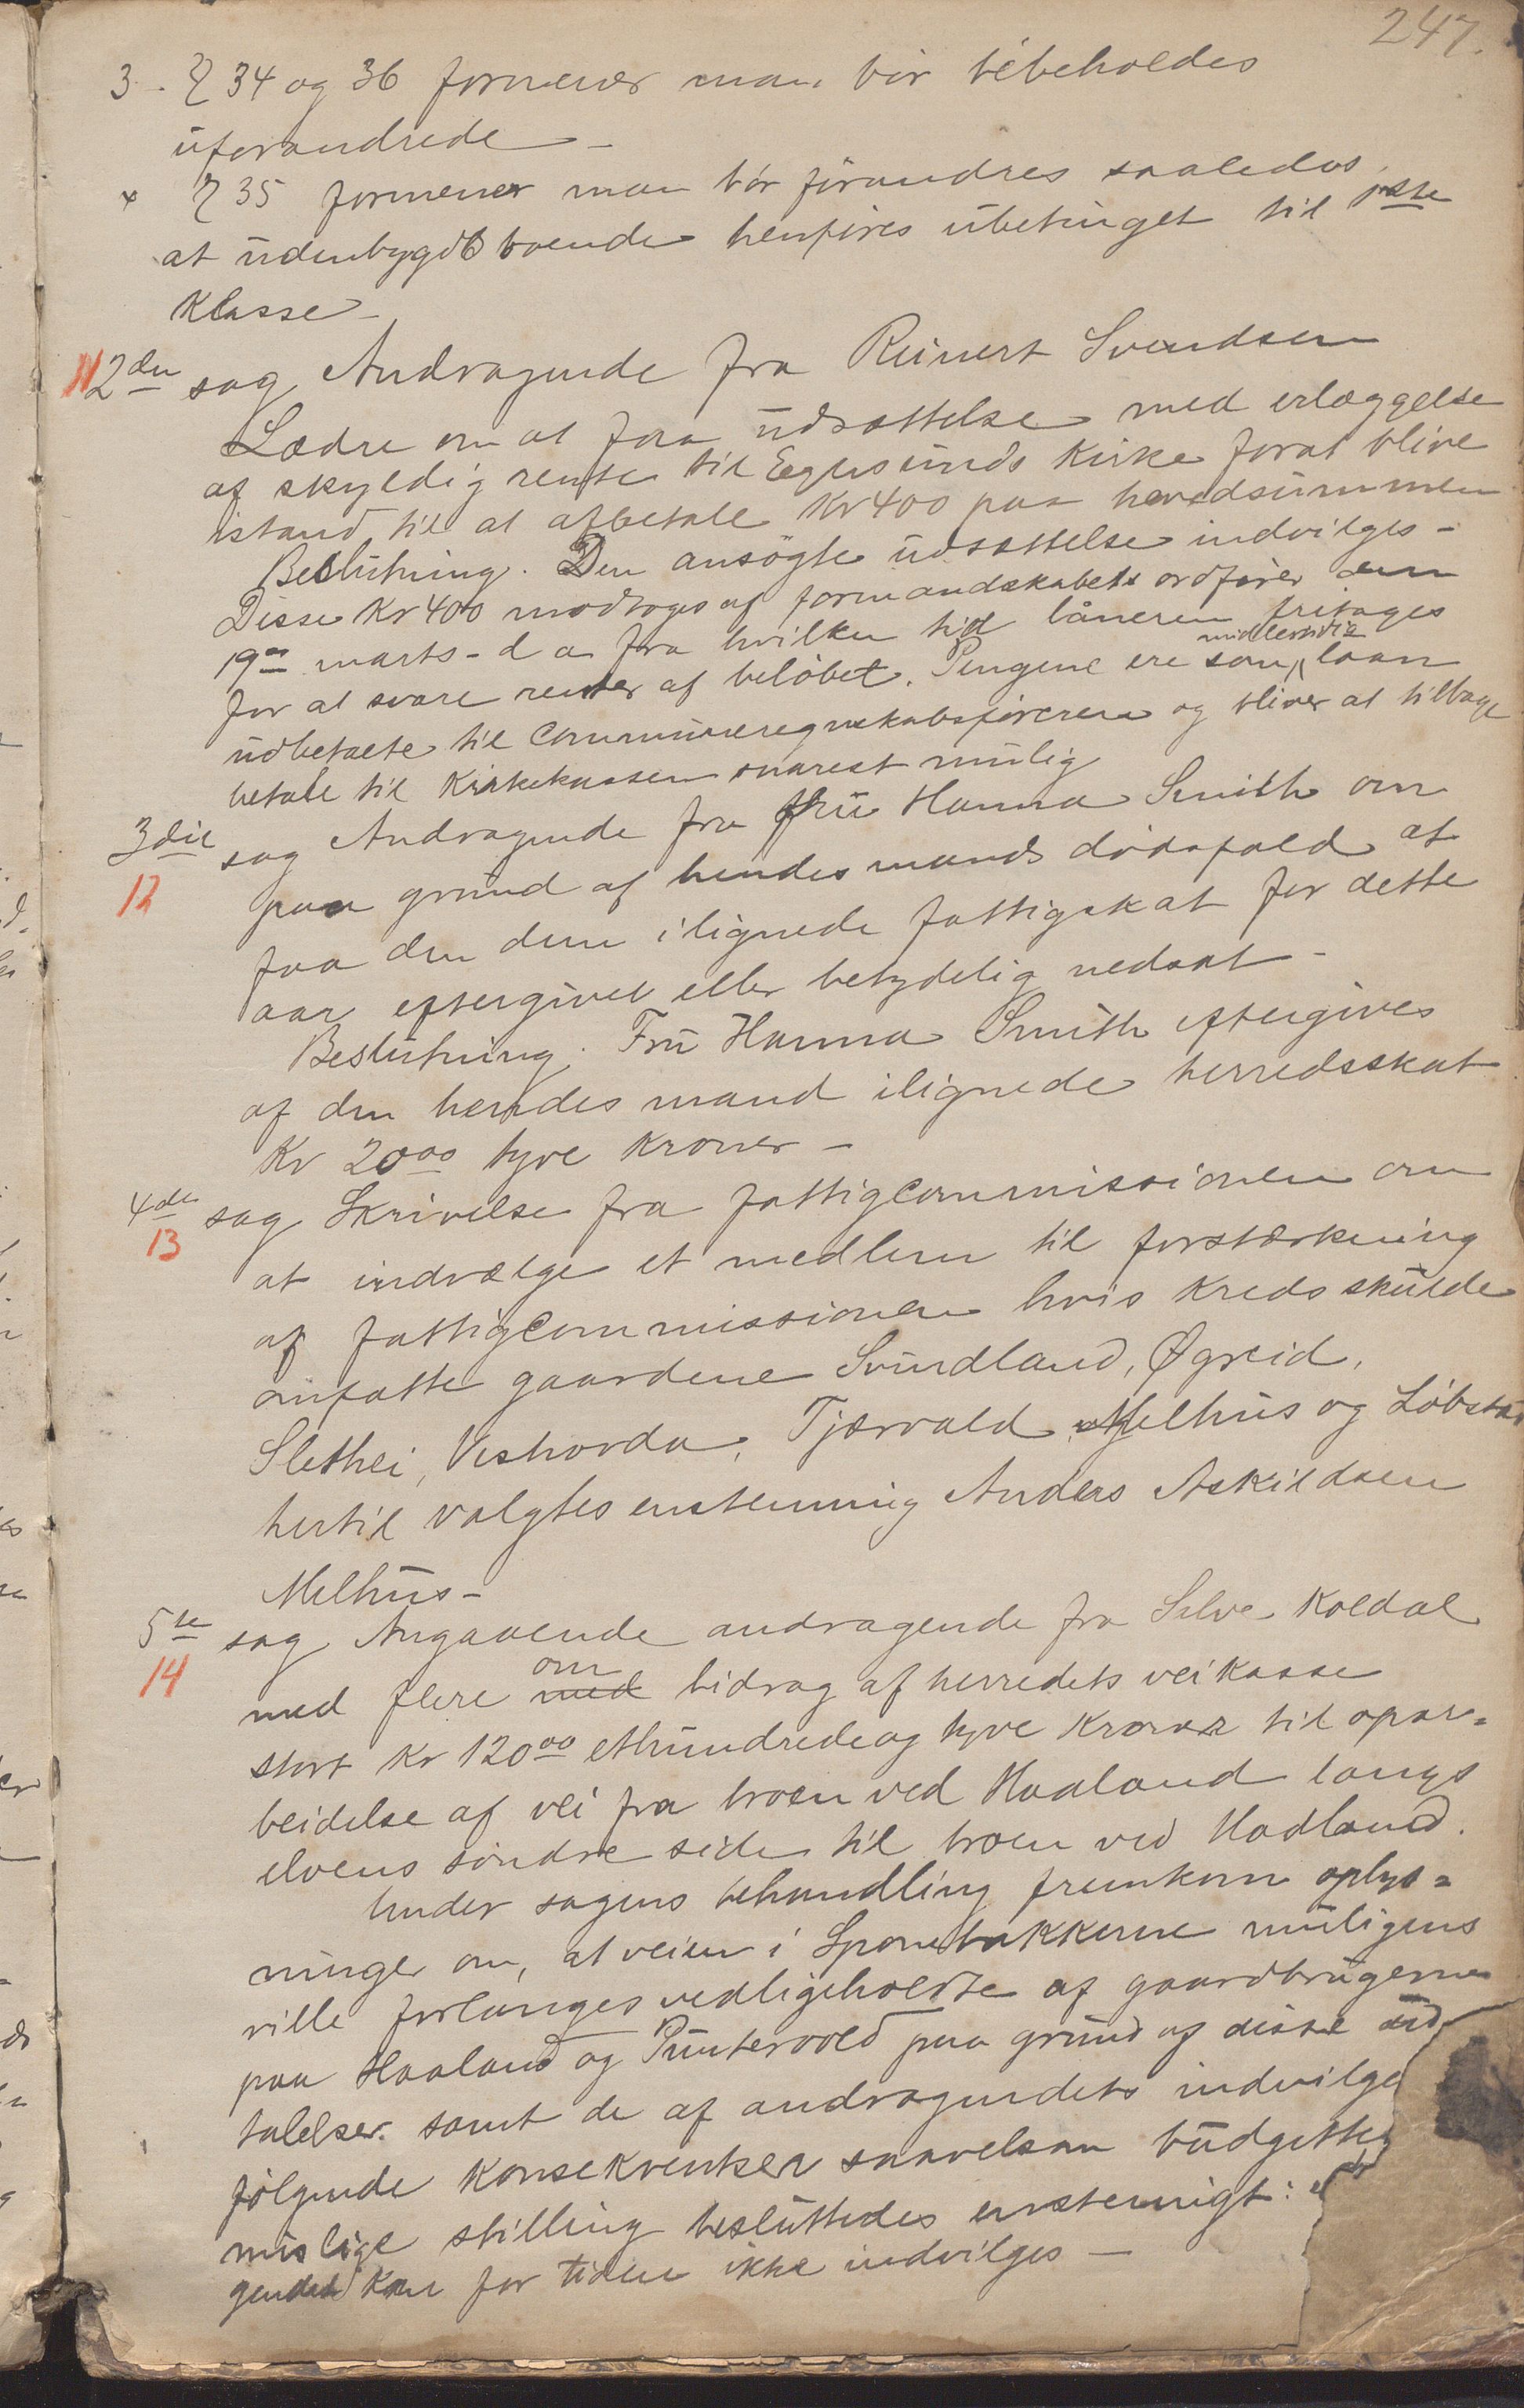 247.
3 - § 34 og 36 formener man bør bibeholdes
uforandrede -
x § 35 formener man bør forandres saaledes
at udenbygds boende henføres ubetinget til 1ste
Klasse -
11 2den sag Andragende fra Reinert Svendsen
Lædre om at faa udsættelse med erlæggelse
af skyldig rente til Egersunds Kirke forat blive
istand til at afbetale Kr 400 paa hovedsummen
Beslutning. Den ansøgte udsættelse indvilges -
Disse Kr 400 modtoges af formandskabets ordfører den
19de marts - d a fra hvilken tid låneren fritages
for at svare renter af beløbet. Pengene ere som midlertidig laan
udbetalte til Communeregnskabsføreren og bliver at tilbage
betale til Kirkekassen snarest mulig
3die sag Andragende fra fru Hanna Smith om
12 paa grund af hendes mands dødsfald at
faa den dem ilignede fattigskat for dette
aar eftergivet eller betydelig nedsat -
Beslutning. Fru Hanna Smith eftergives
af den hendes mand ilignede herredsskat
Kr 20 00 tyve kroner -
4de sag Skrivelse fra fattigcommissionen om
13 at indvælge et medlem til forstærkning
af fattigcommissionen hvis kreds skulde
omfatte gaardene Svindland, Øgreid,
Slethei, Veshovda, Tjærvald, Melhus og Løbstad
hertil valgtes enstemmig Anders Askildsen
Melhus -
5te sag Angaaende andragende fra Salve Koldal
14 med flere med om bidrag af herredets veikasse
stort Kr 120 00 ethundrede og tyve Kroner til opar=
beidelse af vei fra broen ved Haaland langs
elvens søndre side til broen ved Hadland.
Under sagens behandling fremkom oplys=
ninger om, at veien i Sponebakkerne muligens
ville forlanges vedligeholdte af gaardbrugerne
paa Haaland og Puntervold paa grund af disse ud
talelser samt de af andragendets indvilge
følgende Konsekventser saavelsom budgettes
mislige stilling besluttedes enstemmigt:
gendet kan for tiden ikke indvilges -